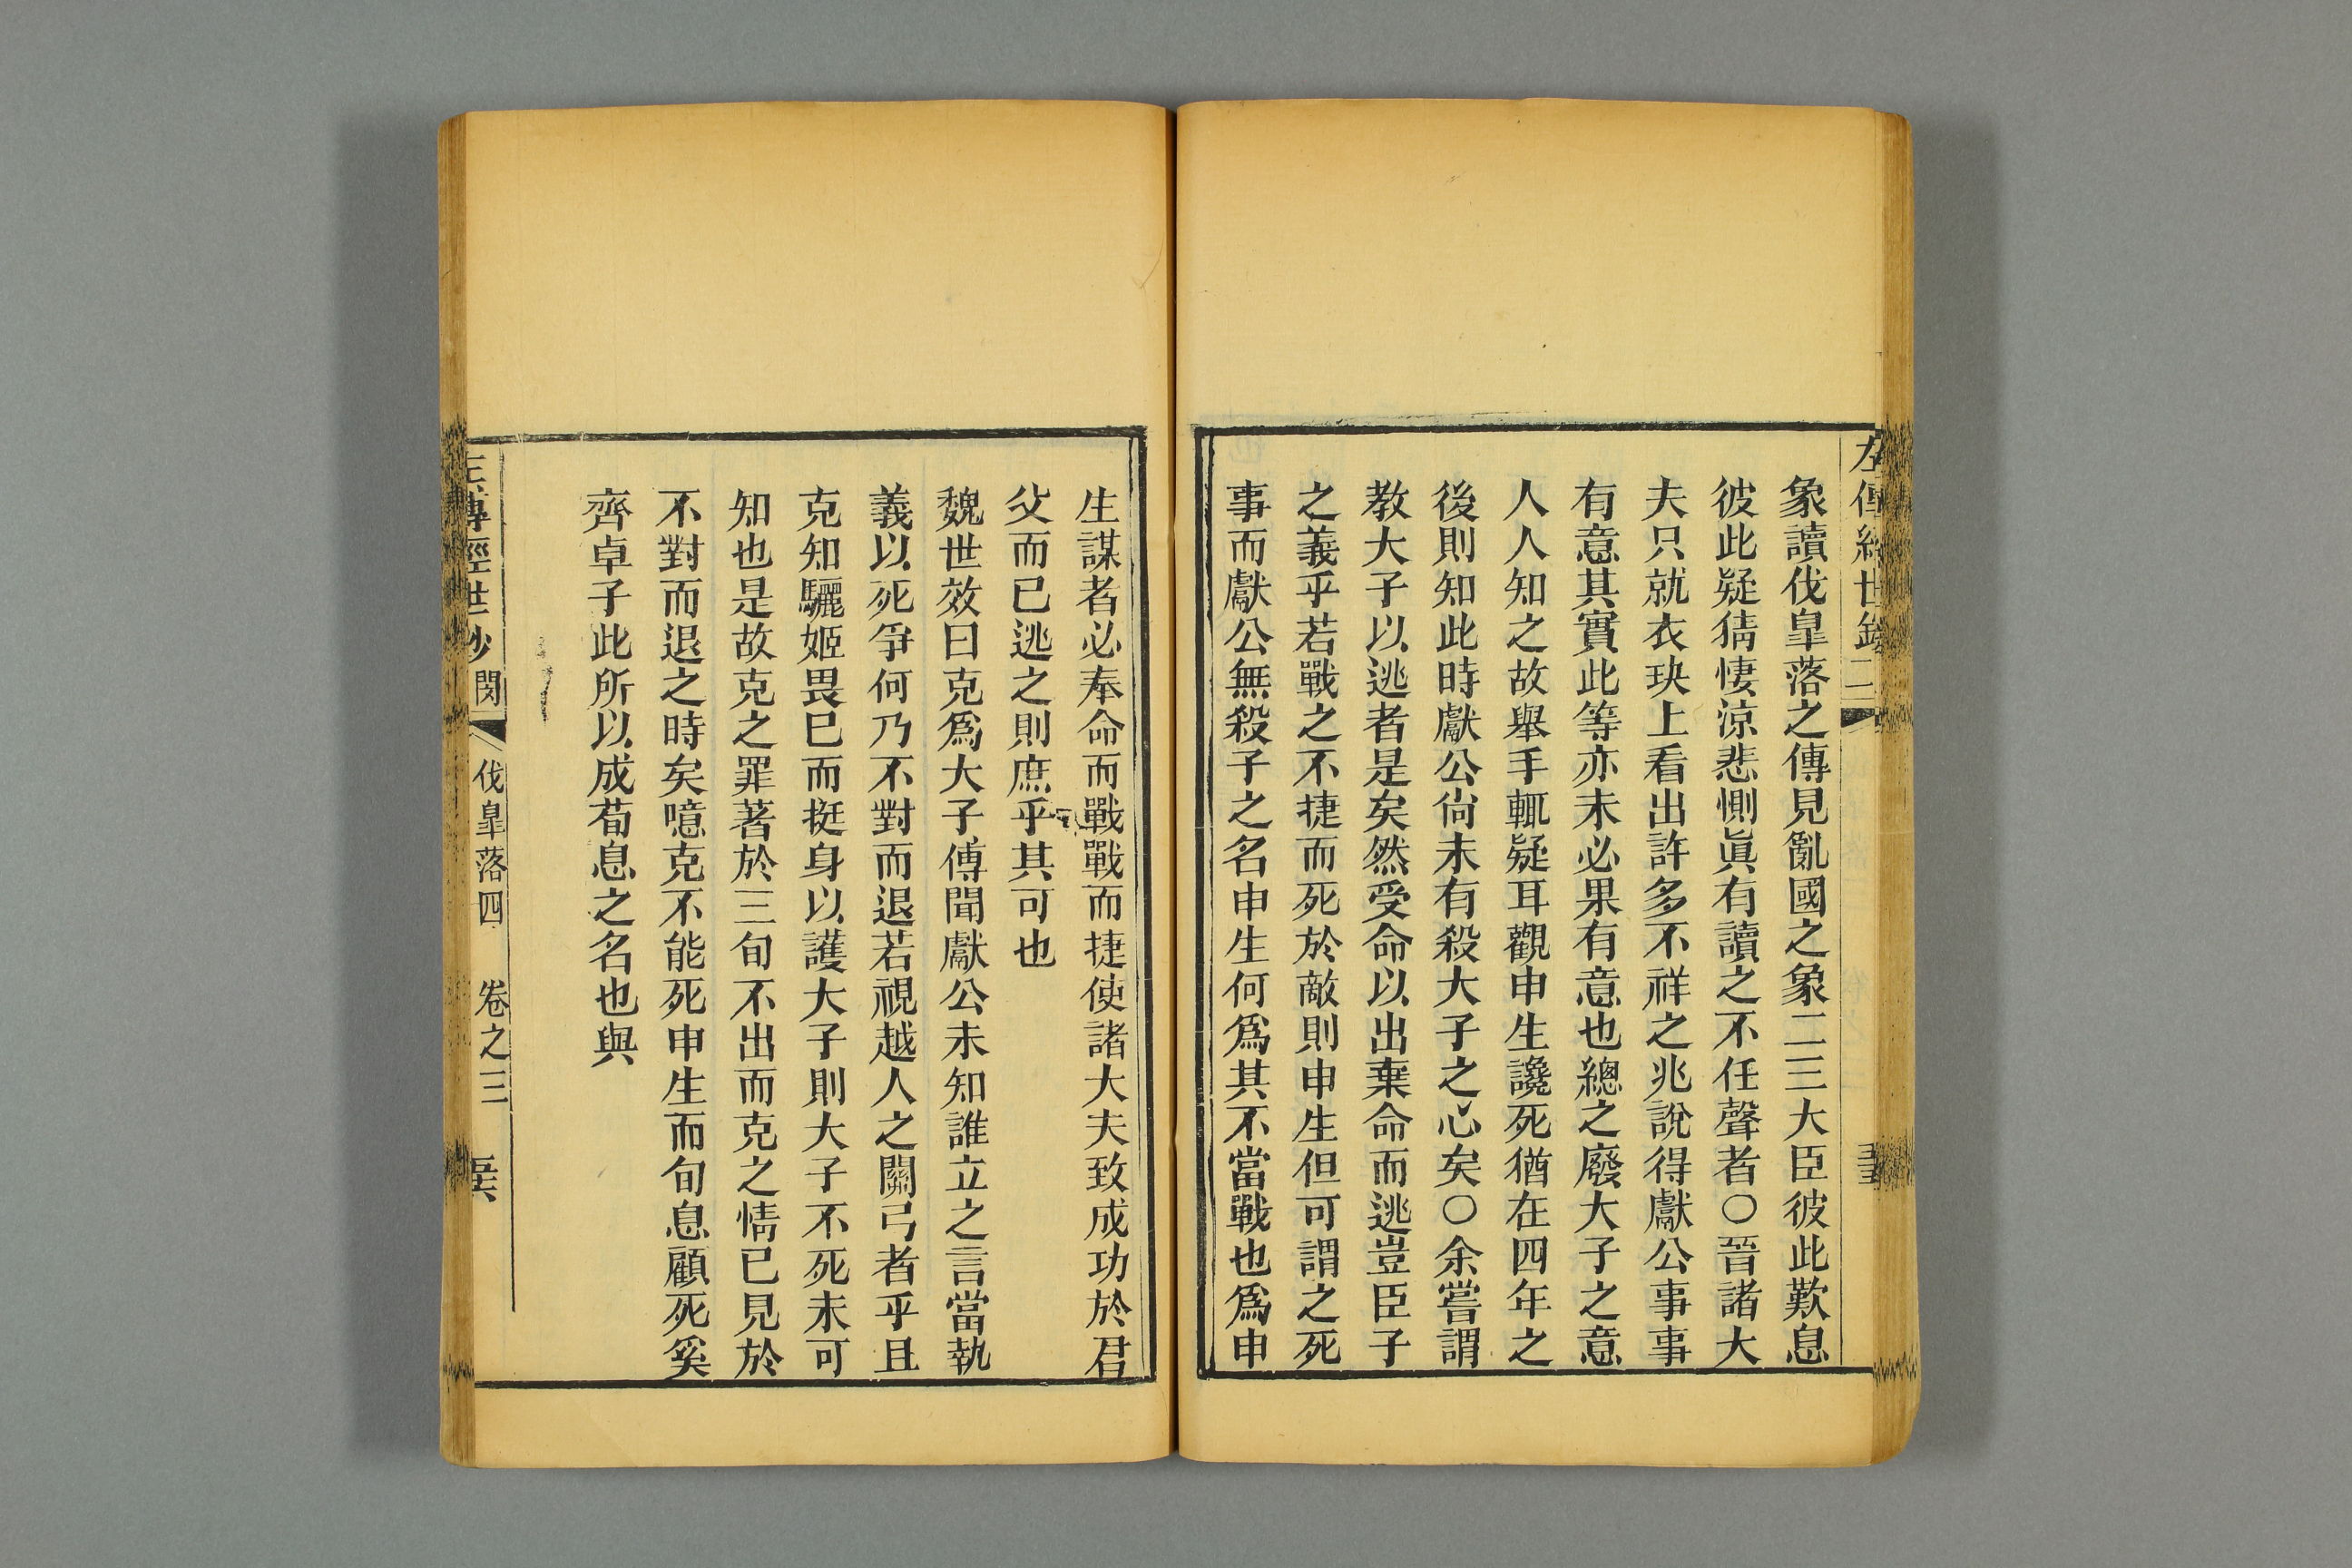 左傳經世鈔二
象讀伐臯落之傳見亂國之象二三大臣彼此歎息
彼此疑猜悽涼悲惻眞有讀之不任聲者○晉諸大
夫只就衣玦上看出許多不祥之兆說得獻公事事
有意其實此等亦未必果有意也總之廢大子之意
人人知之故舉手輒疑耳觀申生讒死猶在四年之
後則知此時獻公尙未有殺大子之心矣○余嘗謂
教大子以逃者是矣然受命以出棄命而逃豈臣子
之義乎若戰之不捷而死於敵則申生但可謂之死
事而獻公無殺子之名申生何爲其不當戰也爲申
生謀者必奉命而戰戰而捷使諸大夫致成功於君
父而已逃之則庶乎其可也
魏世效曰克爲大子傅聞獻公未知誰立之言當執
義以死爭何乃不對而退若視越人之關弓者乎且
克知驪姬畏已而挺身以護大子則大子不死未可
知也是故克之罪著於三旬不出而克之情已見於
不對而退之時矣噫克不能死申生而旬息顧死奚
齊卓子此所以成荀息之名也與
左傳經世鈔 閔 伐臯落四 卷之三